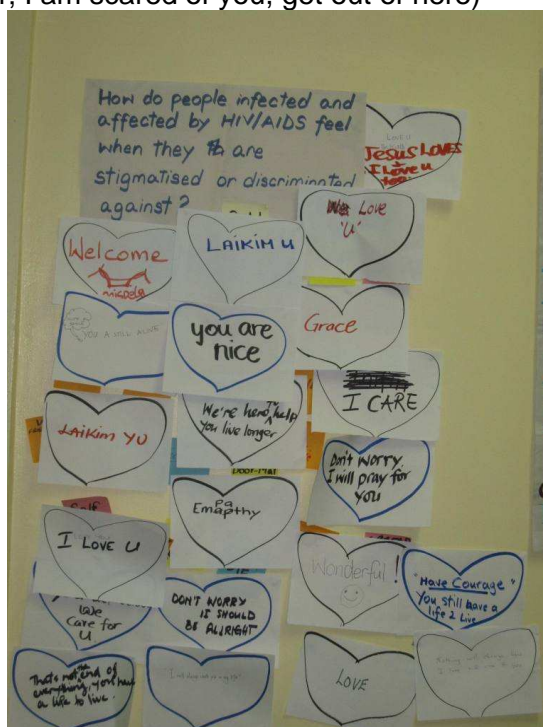 How do people infected and
affected by HIV/AIDS feel
when they are
stigmatised or discriminated
against?
Jesus LOVES
I Love u
too
We Love
'U'
Welcome
LAIKIM U
YOU R STILL ALIVE
you are
nice
Grace
I CARE
LAIKIM YU
We're here To help
You live longer
Don't WORRY
I will pray for
you
Self
Door-Mat
Emapthy
I LOVE U
Wonderful !
"Have Courage"
You still have a
life 2 Live
We
Care for
U
DON'T WORRY
IS SHOULD
BE ALLRIGHT
Thats not the end of
everything, You have
a life to live.
LOVE